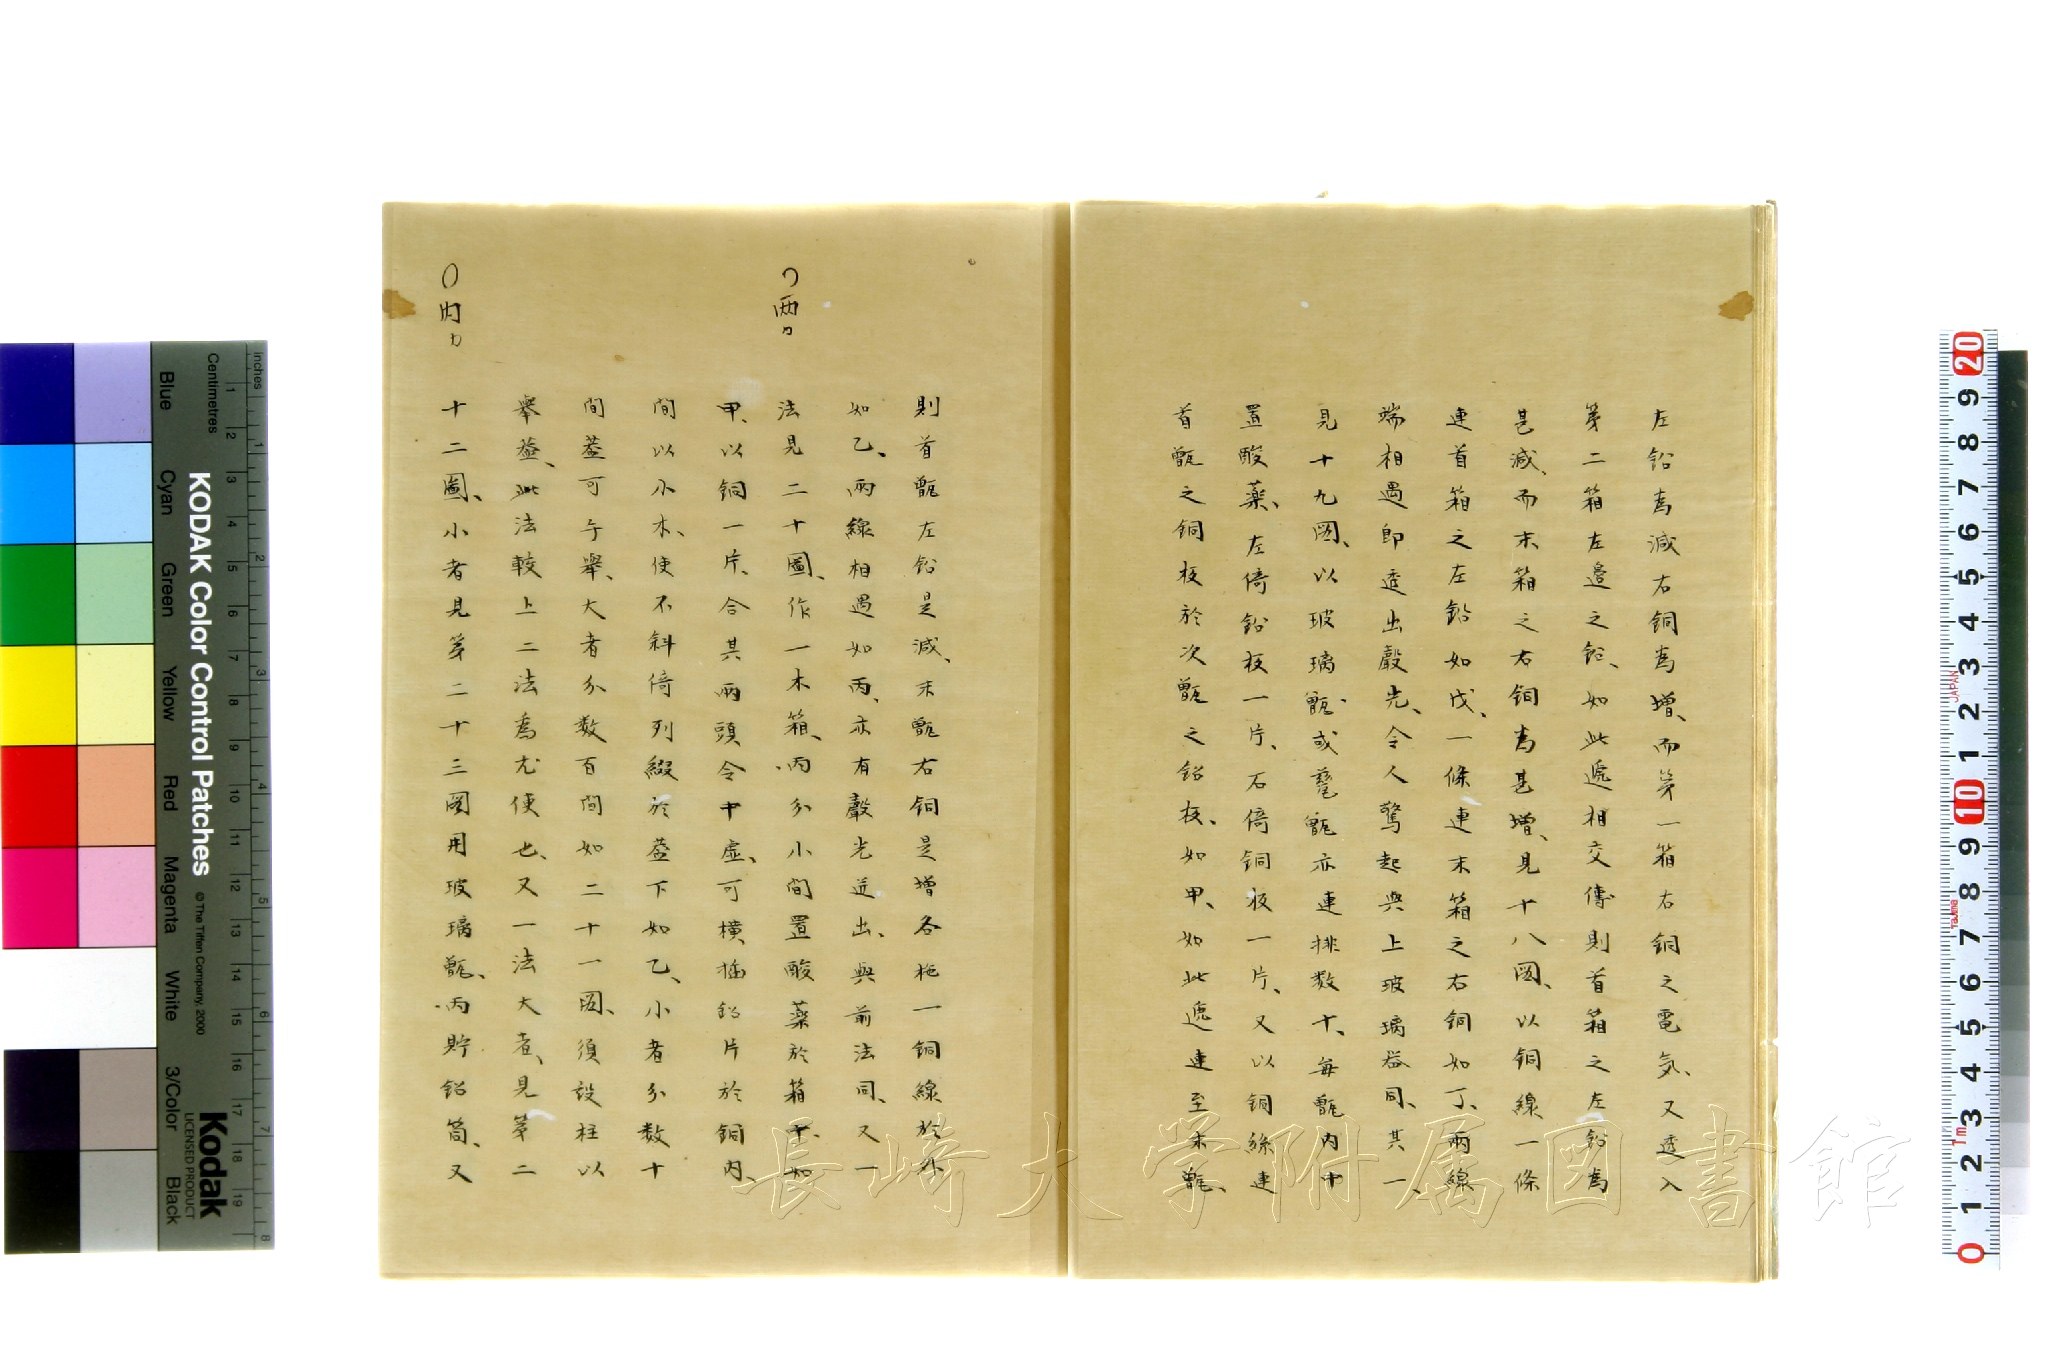 左鉛爲減右銅爲增、而第一箱右銅之電気、又透入
第二箱左邉之鉛、如此遞相交傳則首箱之左鉛爲
甚減、而末箱之右銅爲甚增、見十八圖、以銅線一條
連首箱之左鉛如戊、一條連末箱之右銅如丁、兩線
端相遇即迸出聲光、令人驚起與上玻璃器同、其一、
見十九圖、以玻璃甑、或甕甑亦連排数十、每甑内中
置酸藥、左倚鉛板一片、右倚銅板一片、又以銅絲連
首甑之銅板於次甑之鉛板、如甲、如此遞連至末甑、
則首甑左鉛是減、末甑右銅是增各拖一銅線於外
如乙、兩線相遇如丙、亦有聲光迸出、與前法同、又一
法見二十圖、作一木箱、丙分小間置酸藥於箱中如
甲、以銅一片、合其兩頭令中虛、可橫插鉛片於銅内、
間以小木、使不斜倚列綴於蓋下如乙、小者分数十
間蓋可手舉、大者分数百間如二十一圖、須設柱以
舉蓋、此法較上二法爲尤便也、又一法大者、見第二
十二圖、小者見第二十三圖用玻璃甑、丙貯鉛筒、又
兩カ
内カ
KODAK Color Control Patches
© The Tiffen Company, 2000
Kodak
LICENSED PRODUCT
Centimetres
inches
Blue
Cyan
Green
Yellow
Red
Magenta
White
3/Color
Black
1 2 3 4 5 6 7 8 9 10 11 12 13 14 15 16 17 18 19
1 2 3 4 5 6 7 8
20 9 8 7 6 5 4 3 2 1 10 9 8 7 6 5 4 3 2 1 0
JAPAN
1m
長崎大学附属図書館